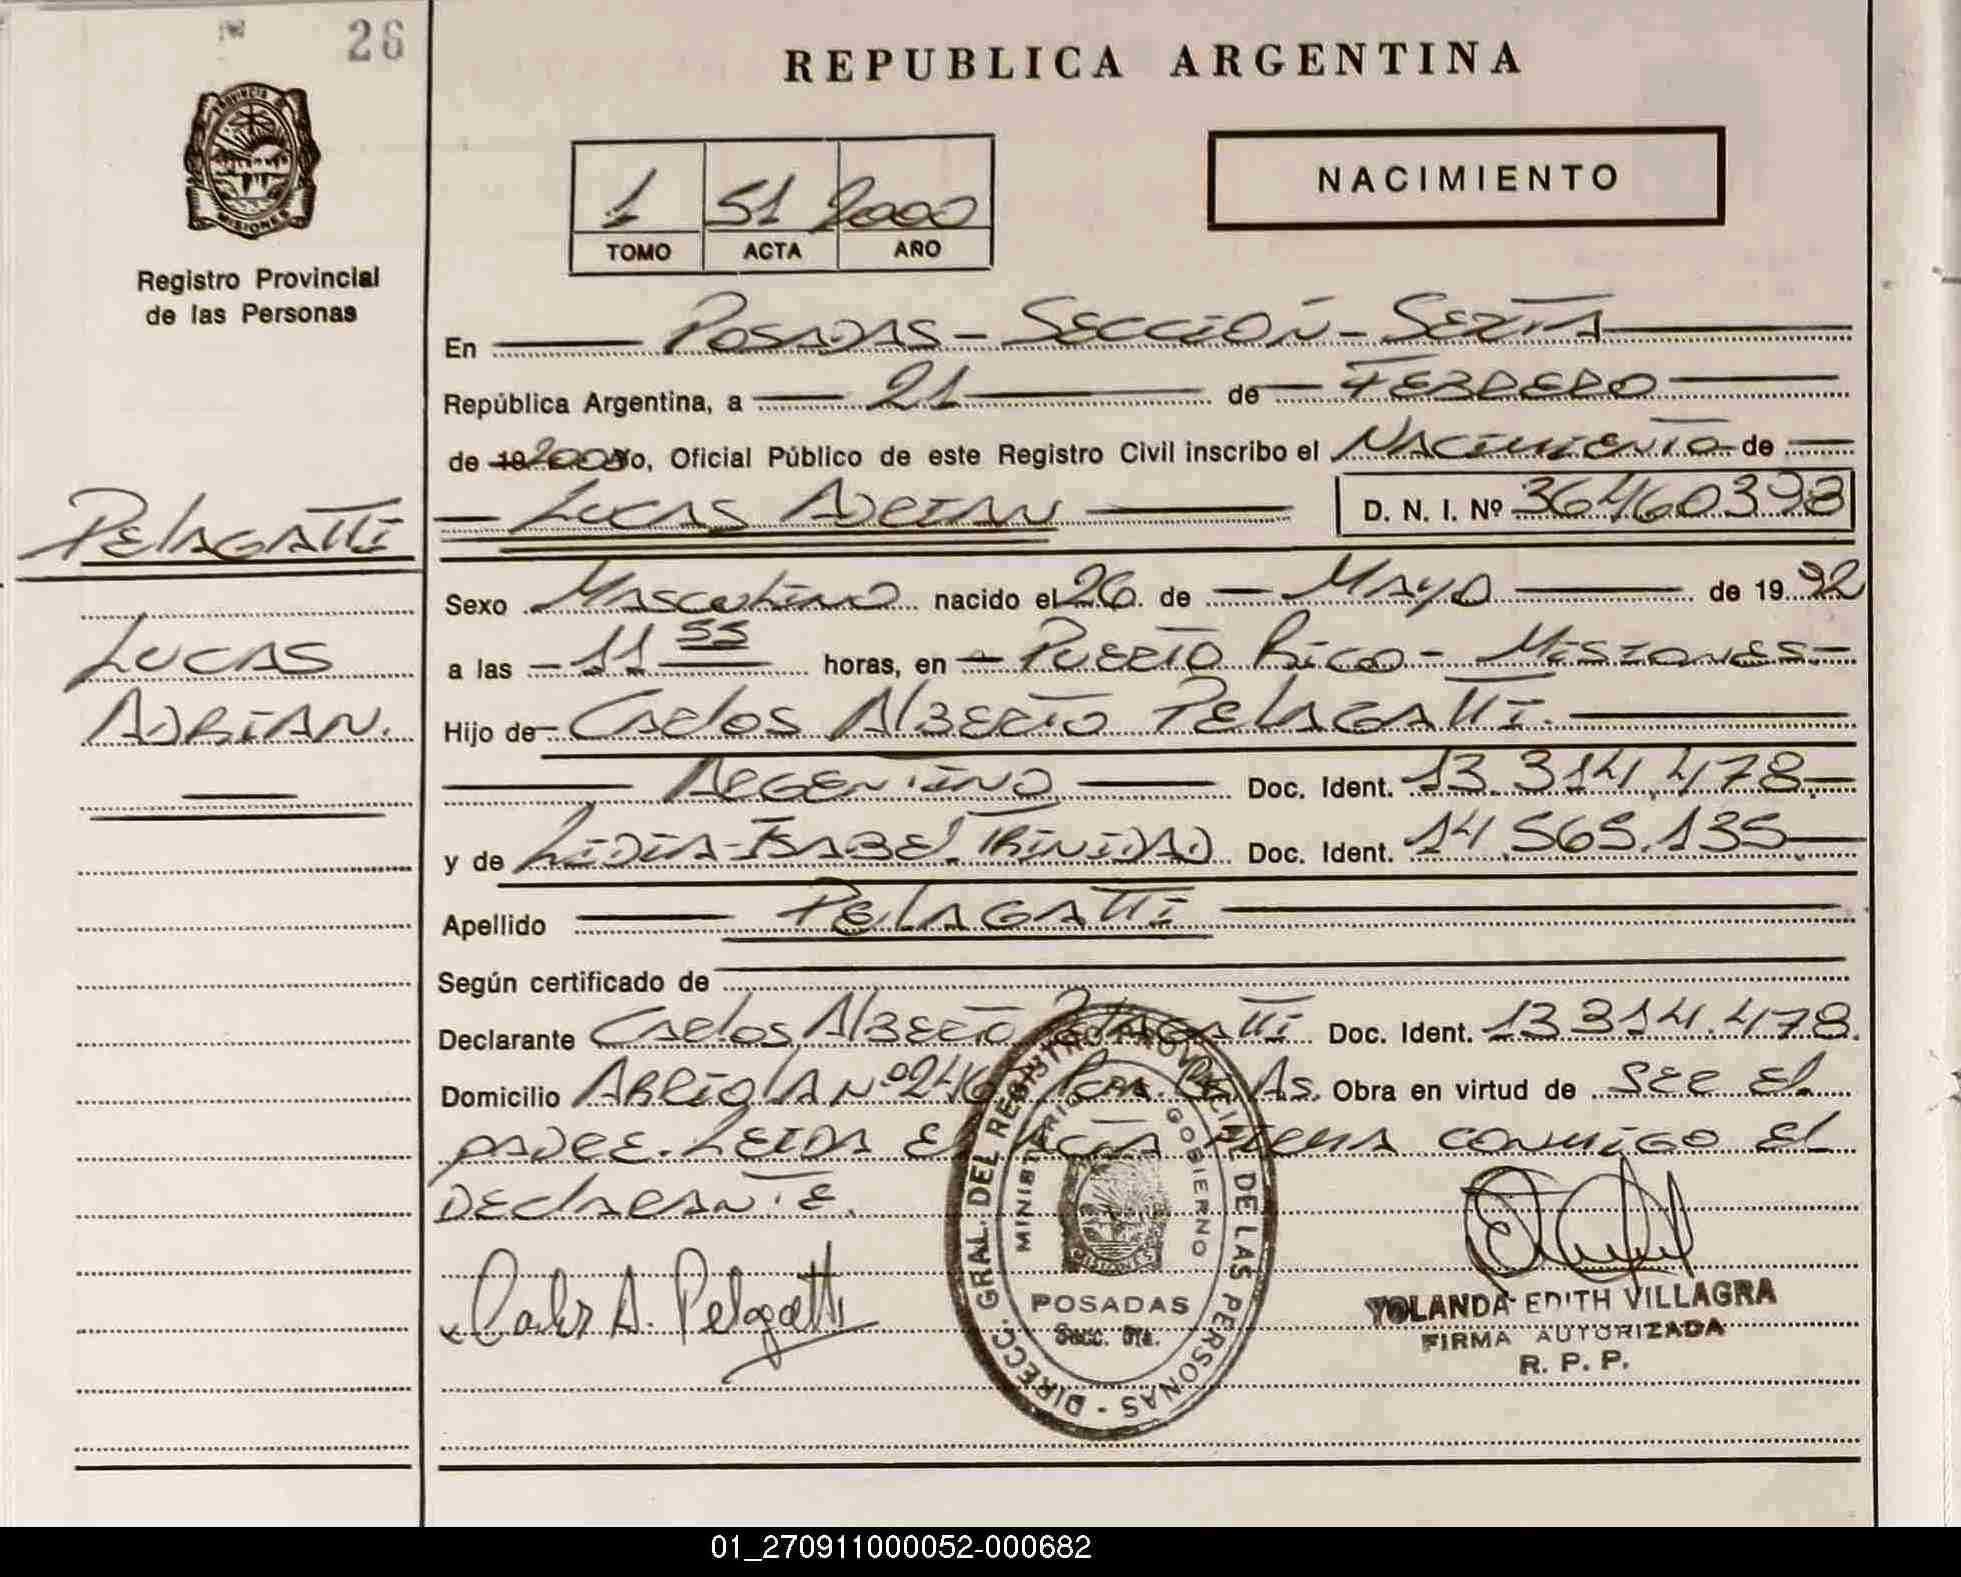 26
REPUBLICA ARGENTINA
PROVINCIA D
MISIONES
Registro Provincial
de las Personas
1 51 2000
TOMO ACTA AÑO
NACIMIENTO
En Posadas - Sección - Sexta
República Argentina, a 21 de Febrero
de 19 2000 Yo, Oficial Público de este Registro Civil inscribo el Nacimiento de
Lucas Adrian D. N. I. Nº 36460398
Pelagatti
Lucas
Adrian.
Sexo Masculino nacido el 26 de Mayo de 19 92
a las 11 55 horas, en Puerto Rico - Misiones -
Hijo de Carlos Alberto Pelagatti.
Argentino Doc. Ident. 13.314.478.
y de Lidia Isabel Trinidad Doc. Ident. 14.565.135
Apellido Pelagatti
Según certificado de
Declarante Carlos Alberto Pelagatti Doc. Ident. 13.314.478.
Domicilio Arriola Nº Obra en virtud de ser el
padre. Leida el acta firma conmigo el
declarante.
Carlos A. Pelagatti
DIRECC. GRAL. DEL REGISTRO PROVINCIAL DE LAS PERSONAS -
MINISTERIO GOBIERNO
MISIONES
POSADAS
Secc. 6ta.
YOLANDA EDITH VILLAGRA
FIRMA AUTORIZADA
R. P. P.
01_270911000052-000682